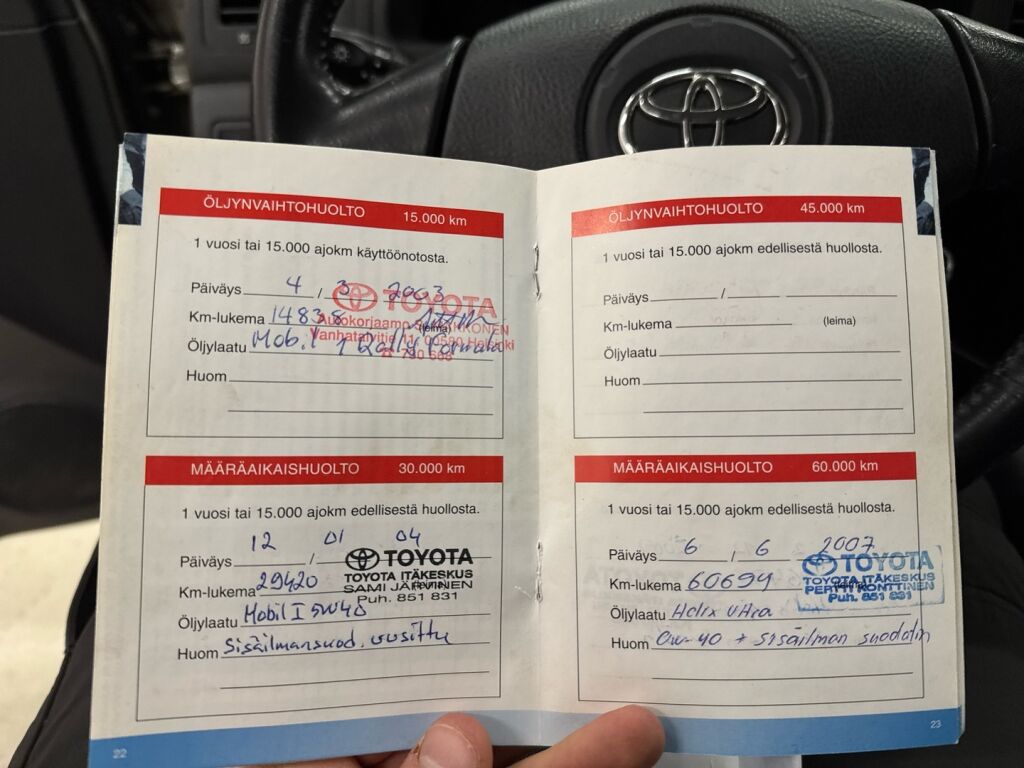 ÖLJYNVAIHTOHUOLTO 15.000 km
1 vuosi tai 15.000 ajokm käyttöönotosta.
Päiväys 4 / 3 2003
TOYOTA
Km-lukema 14838 (leima)
Autokorjaamo
Vanhatalvitie 11, 00580 Helsinki
Öljylaatu Mobil 1 Rally Formula
Huom
MÄÄRÄAIKAISHUOLTO 30.000 km
1 vuosi tai 15.000 ajokm edellisestä huollosta.
Päiväys 12 / 01 04
TOYOTA
TOYOTA ITÄKESKUS
Km-lukema 29420
SAMI JÄRVINEN
Puh. 851 831
Öljylaatu Mobil I 5W40
Huom Sisäilmansuod. uusittu
22
ÖLJYNVAIHTOHUOLTO 45.000 km
1 vuosi tai 15.000 ajokm edellisestä huollosta.
Päiväys /
Km-lukema (leima)
Öljylaatu
Huom
MÄÄRÄAIKAISHUOLTO 60.000 km
1 vuosi tai 15.000 ajokm edellisestä huollosta.
Päiväys 6 / 6 2007
TOYOTA
TOYOTA ITÄKESKUS
Km-lukema 60694
PERTTI KONTTINEN
Puh. 851 831
Öljylaatu Helix Ultra
Huom 0w-40 + sisäilman suodatin
23